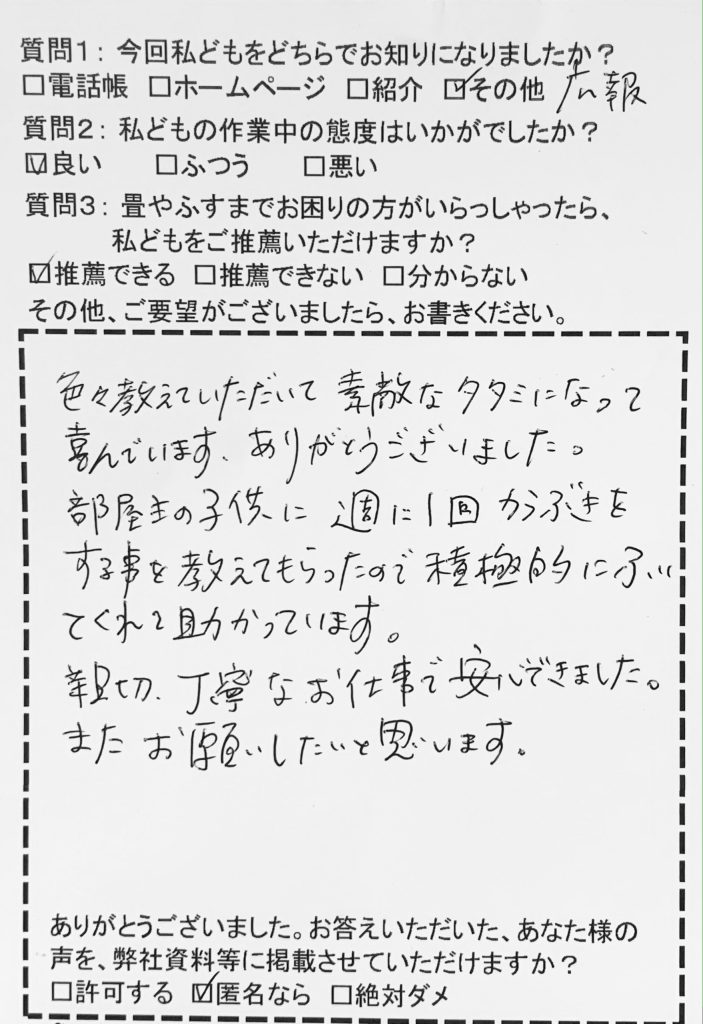 質問1：今回私どもをどちらでお知りになりましたか？
□電話帳 □ホームページ □紹介 ☑その他 広報
質問2：私どもの作業中の態度はいかがでしたか？
☑良い □ふつう □悪い
質問3：畳やふすまでお困りの方がいらっしゃったら、
私どもをご推薦いただけますか？
☑推薦できる □推薦できない □分からない
その他、ご要望がございましたら、お書きください。
色々教えていただいて 素敵なタタミになって
喜んでいます、ありがとうございました。
部屋主の子供に 週に1回 からぶきを
する事を教えてもらったので積極的にふい
てくれて助かっています。
親切、丁寧なお仕事で安心できました。
またお願いしたいと思います。
ありがとうございました。お答えいただいた、あなた様の
声を、弊社資料等に掲載させていただけますか？
□許可する ☑匿名なら □絶対ダメ